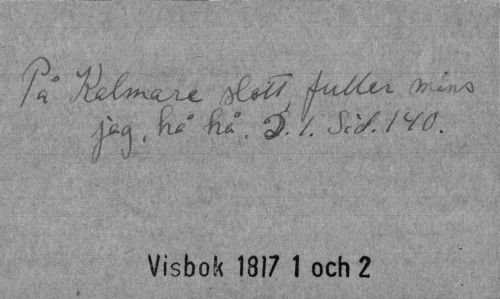 På Kalmare slott, fuller mins
jag, hå hå. D. 1. Sid. 140.
Visbok 1817 1 och 2